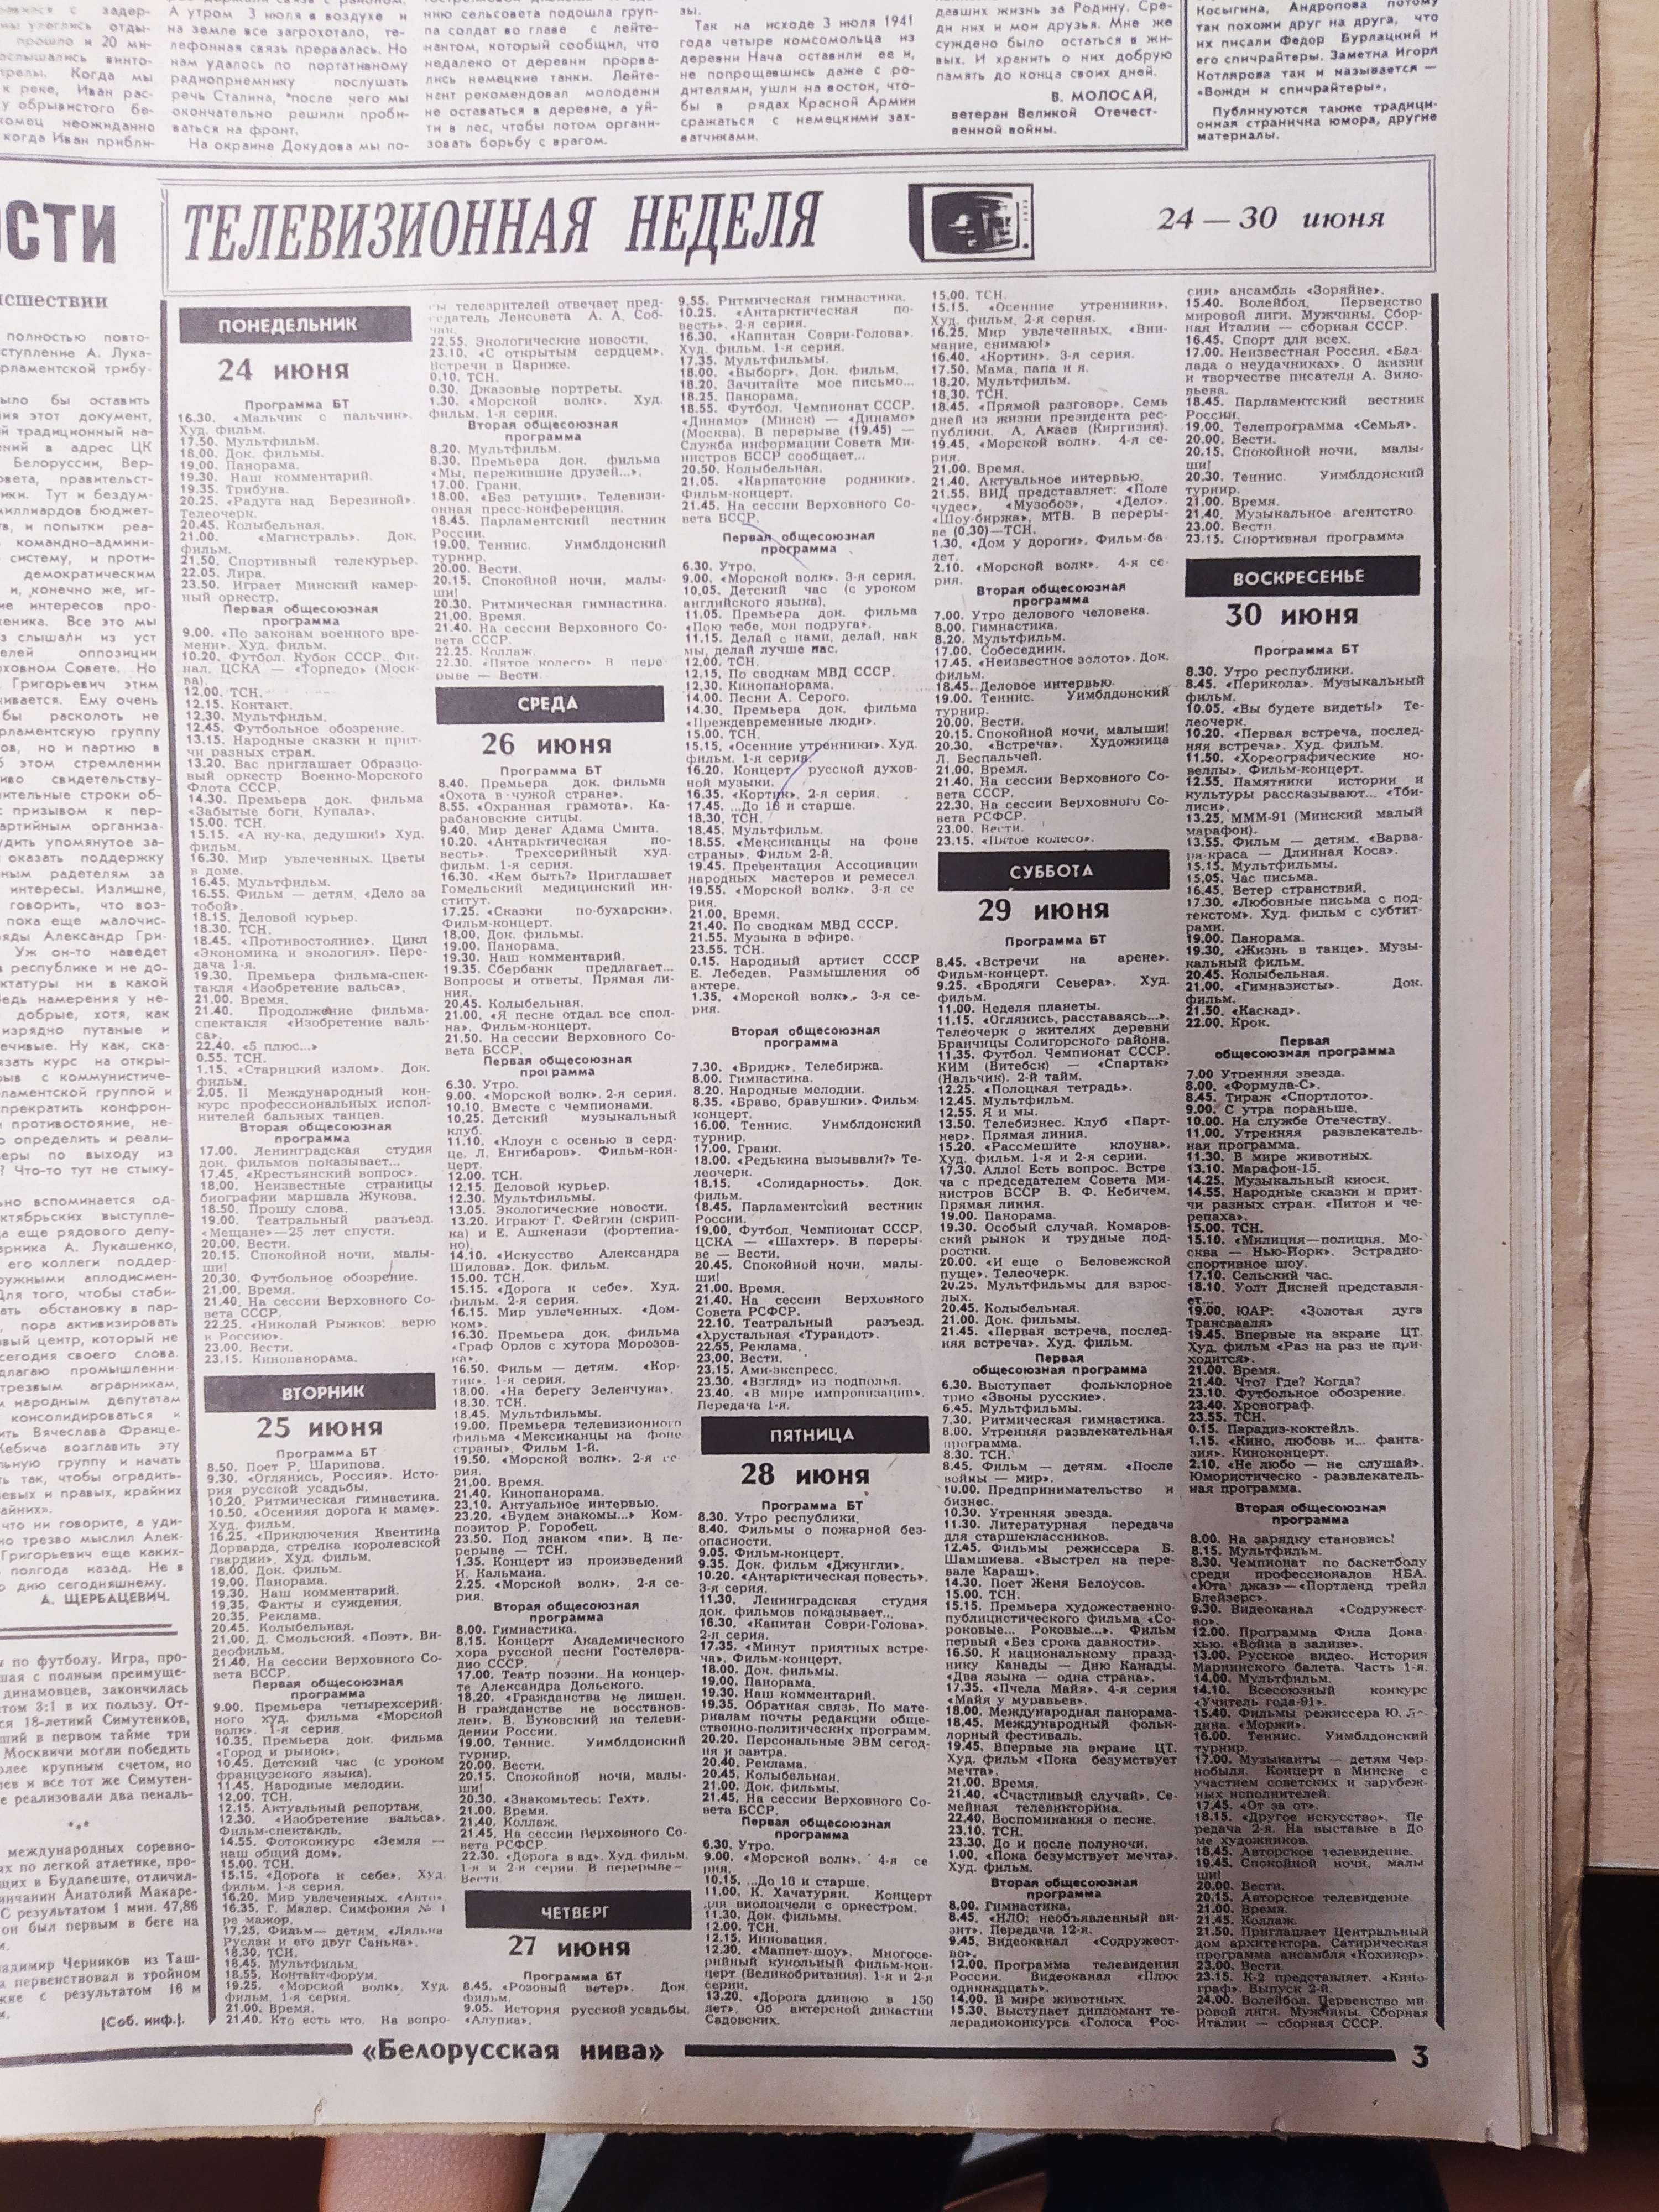 А утром 3 июля в воздухе и
на земле все загрохотало, те-
лефонная связь прервалась. Но
нам удалось по портативному
радиоприемнику послушать
речь Сталина, после чего мы
окончательно решили проби-
ваться на фронт.
На окраине Докудова мы по-
нию сельсовета подошла груп-
па солдат во главе с лейте-
нантом, который сообщил, что
недалеко от деревни прорва-
лись немецкие танки. Лейте-
нант рекомендовал молодежи
не оставаться в деревне, а уй-
ти в лес, чтобы потом органи-
зовать борьбу с врагом.
зы.
Так на исходе 3 июля 1941
года четыре комсомольца из
деревни Нача оставили ее и,
не попрощавшись даже с ро-
дителями, ушли на восток, что-
бы в рядах Красной Армии
сражаться с немецкими зах-
ватчиками.
давших жизнь за Родину. Сре-
ди них и мои друзья. Мне же
суждено было остаться в жи-
вых. И хранить о них добрую
память до конца своих дней.
В. МОЛОСАЙ,
ветеран Великой Отечест-
венной войны.
Косыгина, Андропова потому
так похожи друг на друга, что
их писали Федор Бурлацкий и
его спичрайтеры. Заметка Игоря
Котлярова так и называется —
«Вожди и спичрайтеры».
Публикуются также традици-
онная страничка юмора, другие
материалы.
ТЕЛЕВИЗИОННАЯ НЕДЕЛЯ
24 — 30 июня
ПОНЕДЕЛЬНИК
24 июня
Программа БТ
16.30. «Мальчик с пальчик».
Худ. фильм.
17.50. Мультфильм.
18.00. Док. фильмы.
19.00. Панорама.
19.30. Наш комментарий.
19.35. Трибуна.
20.25. «Радуга над Березиной».
Телеочерк.
20.45. Колыбельная.
21.00. «Магистраль». Док.
фильм.
21.50. Спортивный телекурьер.
22.05. Лира.
23.50. Играет Минский камер-
ный оркестр.
Первая общесоюзная
программа
9.00. «По законам военного вре-
мени». Худ. фильм.
10.20. Футбол. Кубок СССР. Фи-
нал. ЦСКА — «Торпедо» (Моск-
ва).
12.00. ТСН.
12.15. Контакт.
12.30. Мультфильм.
12.45. Футбольное обозрение.
13.15. Народные сказки и прит-
чи разных стран.
13.20. Вас приглашает Образцо-
вый оркестр Военно-Морского
Флота СССР.
14.30. Премьера док. фильма
«Забытые боги, Купала».
15.00. ТСН.
15.15. «А ну-ка, дедушки!» Худ.
фильм.
16.30. Мир увлеченных. Цветы
в доме.
16.45. Мультфильм.
16.55. Фильм — детям. «Дело за
тобой».
18.15. Деловой курьер.
18.30. ТСН.
18.45. «Противостояние». Цикл
«Экономика и экология». Пере-
дача 1-я.
19.30. Премьера фильма-спек-
такля «Изобретение вальса».
21.00. Время.
21.40. Продолжение фильма-
спектакля «Изобретение валь-
са».
22.40. «5 плюс...»
0.55. ТСН.
1.15. «Старицкий излом». Док.
фильм.
2.05. II Международный кон-
курс профессиональных испол-
нителей бальных танцев.
Вторая общесоюзная
программа
17.00. Ленинградская студия
док. фильмов показывает...
17.45. «Крестьянский вопрос».
18.00. Неизвестные страницы
биографии маршала Жукова.
18.50. Прошу слова.
19.00. Театральный разъезд.
«Мещане»—25 лет спустя.
20.00. Вести.
20.15. Спокойной ночи, малы-
ши!
20.30. Футбольное обозрение.
21.00. Время.
21.40. На сессии Верховного Со-
вета СССР.
22.25. «Николай Рыжков: верю
в Россию».
23.00. Вести.
23.15. Кинопанорама.
ВТОРНИК
25 июня
Программа БТ
8.50. Поет Р. Шарипова.
9.30. «Оглянись, Россия». Исто-
рия русской усадьбы.
10.20. Ритмическая гимнастика.
10.50. «Осенняя дорога к маме».
Худ. фильм.
16.25. «Приключения Квентина
Дорварда, стрелка королевской
гвардии». Худ. фильм.
18.00. Док. фильм.
19.00. Панорама.
19.30. Наш комментарий.
19.35. Факты и суждения.
20.35. Реклама.
20.45. Колыбельная.
21.00. Д. Смольский. «Поэт». Ви-
деофильм.
21.40. На сессии Верховного Со-
вета БССР.
Первая общесоюзная
программа
9.00. Премьера четырехсерий-
ного худ. фильма «Морской
волк». 1-я серия.
10.35. Премьера док. фильма
«Город и рынок».
10.45. Детский час (с уроком
французского языка).
11.45. Народные мелодии.
12.00. ТСН.
12.15. Актуальный репортаж.
12.30. «Изобретение вальса».
Фильм-спектакль.
14.55. Фотоконкурс «Земля —
наш общий дом».
15.00. ТСН.
15.15. «Дорога к себе». Худ.
фильм. 1-я серия.
16.20. Мир увлеченных. «Авто».
16.35. Г. Малер. Симфония № 1
ре мажор.
17.25. Фильм— детям. «Лялька
Руслан и его друг Санька».
18.30. ТСН.
18.45. Мультфильм.
18.55. Контакт-форум.
19.25. «Морской волк». Худ.
фильм. 1-я серия.
21.00. Время.
21.40. Кто есть кто. На вопро-
сы телезрителей отвечает пред-
седатель Ленсовета А. А. Соб-
чак.
22.55. Экологические новости.
23.10. «С открытым сердцем».
Встречи в Париже.
0.10. ТСН.
0.30. Джазовые портреты.
1.30. «Морской волк». Худ.
фильм. 1-я серия.
Вторая общесоюзная
программа
8.20. Мультфильм.
8.30. Премьера док. фильма
«Мы, пережившие друзей...».
17.00. Грани.
18.00. «Без ретуши». Телевизи-
онная пресс-конференция.
18.45. Парламентский вестник
России.
19.00. Теннис. Уимблдонский
турнир.
20.00. Вести.
20.15. Спокойной ночи, малы-
ши!
20.30. Ритмическая гимнастика.
21.00. Время.
21.40. На сессии Верховного Со-
вета СССР.
22.25. Коллаж.
22.30. «Пятое колесо». В пере-
рыве — Вести.
СРЕДА
26 июня
Программа БТ
8.40. Премьера док. фильма
«Охота в чужой стране».
8.55. «Охранная грамота». Ка-
рабановские ситцы.
9.40. Мир денег Адама Смита.
10.20. «Антарктическая по-
весть». Трехсерийный худ.
фильм. 1-я серия.
16.30. «Кем быть?» Приглашает
Гомельский медицинский ин-
ститут.
17.25. «Сказки по-бухарски».
Фильм-концерт.
18.00. Док. фильмы.
19.00. Панорама.
19.30. Наш комментарий.
19.35. Сбербанк предлагает...
Вопросы и ответы. Прямая ли-
ния.
20.45. Колыбельная.
21.00. «Я песне отдал все спол-
на». Фильм-концерт.
21.50. На сессии Верховного Со-
вета БССР.
Первая общесоюзная
программа
6.30. Утро.
9.00. «Морской волк». 2-я серия.
10.10. Вместе с чемпионами.
10.25. Детский музыкальный
клуб.
11.10. «Клоун с осенью в серд-
це. Л. Енгибаров». Фильм-кон-
церт.
12.00. ТСН.
12.15. Деловой курьер.
12.30. Мультфильмы.
13.05. Экологические новости.
13.20. Играют Г. Фейгин (скрип-
ка) и Е. Ашкенази (фортепиа-
но).
14.10. «Искусство Александра
Шилова». Док. фильм.
15.00. ТСН.
15.15. «Дорога к себе». Худ.
фильм. 2-я серия.
16.15. Мир увлеченных. «Дом-
ком».
16.30. Премьера док. фильма
«Граф Орлов с хутора Морозов-
ка».
16.50. Фильм — детям. «Кор-
тик». 1-я серия.
18.00. «На берегу Зеленчука».
18.30. ТСН.
18.45. Мультфильмы.
19.00. Премьера телевизионного
фильма «Мексиканцы на фоне
страны». Фильм 1-й.
19.50. «Морской волк». 2-я се-
рия.
21.00. Время.
21.40. Кинопанорама.
23.10. Актуальное интервью.
23.20. «Будем знакомы...» Ком-
позитор Р. Горобец.
23.50. Под знаком «пи». В пе-
рерыве — ТСН.
1.35. Концерт из произведений
И. Кальмана.
2.25. «Морской волк». 2-я се-
рия.
Вторая общесоюзная
программа
8.00. Гимнастика.
8.15. Концерт Академического
хора русской песни Гостелера-
дио СССР.
17.00. Театр поэзии. На концер-
те Александра Дольского.
18.20. «Гражданства не лишен.
В гражданстве не восстанов-
лен». В. Буковский на телеви-
дении России.
19.00. Теннис. Уимблдонский
турнир.
20.00. Вести.
20.15. Спокойной ночи, малы-
ши!
20.30. «Знакомьтесь: Гехт».
21.00. Время.
21.40. Коллаж.
21.45. На сессии Верховного Со-
вета РСФСР.
22.30. «Дорога в ад». Худ. фильм.
1-я и 2-я серии. В перерыве —
Вести.
ЧЕТВЕРГ
27 июня
Программа БТ
8.45. «Розовый ветер». Док.
фильм.
9.05. История русской усадьбы.
«Алупка».
9.55. Ритмическая гимнастика.
10.25. «Антарктическая по-
весть». 2-я серия.
16.30. «Капитан Соври-Голова».
Худ. фильм. 1-я серия.
17.35. Мультфильмы.
18.00. «Выборг». Док. фильм.
18.20. Зачитайте мое письмо...
18.25. Панорама.
18.55. Футбол. Чемпионат СССР.
«Динамо» (Минск) — «Динамо»
(Москва). В перерыве (19.45) —
Служба информации Совета Ми-
нистров БССР сообщает...
20.50. Колыбельная.
21.05. «Карпатские родники».
Фильм-концерт.
21.45. На сессии Верховного Со-
вета БССР.
Первая общесоюзная
программа
6.30. Утро.
9.00. «Морской волк». 3-я серия.
10.05. Детский час (с уроком
английского языка).
11.05. Премьера док. фильма
«Пою тебе, моя подруга».
11.15. Делай с нами, делай, как
мы, делай лучше нас.
12.00. ТСН.
12.15. По сводкам МВД СССР.
12.30. Кинопанорама.
14.00. Песни А. Серого.
14.30. Премьера док. фильма
«Преждевременные люди».
15.00. ТСН.
15.15. «Осенние утренники». Худ.
фильм. 1-я серия.
16.20. Концерт русской духов-
ной музыки.
16.35. «Кортик». 2-я серия.
17.45. ...До 16 и старше.
18.30. ТСН.
18.45. Мультфильм.
18.55. «Мексиканцы на фоне
страны». Фильм 2-й.
19.45. Презентация Ассоциации
народных мастеров и ремесел.
19.55. «Морской волк». 3-я се
рия.
21.00. Время.
21.40. По сводкам МВД СССР.
21.55. Музыка в эфире.
23.55. ТСН.
0.15. Народный артист СССР
Е. Лебедев. Размышления об
актере.
1.35. «Морской волк». 3-я се-
рия.
Вторая общесоюзная
программа
7.30. «Бридж». Телебиржа.
8.00. Гимнастика.
8.20. Народные мелодии.
8.35. «Браво, бравушки». Фильм
концерт.
16.00. Теннис. Уимблдонский
турнир.
17.00. Грани.
18.00. «Редькина вызывали?» Те-
леочерк.
18.15. «Солидарность». Док.
фильм.
18.45. Парламентский вестник
России.
19.00. Футбол. Чемпионат СССР.
ЦСКА — «Шахтер». В переры-
ве — Вести.
20.45. Спокойной ночи, малы-
ши!
21.00. Время.
21.40. На сессии Верховного
Совета РСФСР.
22.10. Театральный разъезд.
«Хрустальная «Турандот».
22.55. Реклама.
23.00. Вести.
23.15. Ами-экспресс.
23.30. «Взгляд» из подполья.
23.40. «В мире импровизации».
Передача 1-я.
ПЯТНИЦА
28 июня
Программа БТ
8.30. Утро республики.
8.40. Фильмы о пожарной без-
опасности.
9.05. Фильм-концерт.
9.35. Док. фильм «Джунгли».
10.20. «Антарктическая повесть».
3-я серия.
11.30. Ленинградская студия
док. фильмов показывает...
16.30. «Капитан Соври-Голова».
2-я серия.
17.35. «Минут приятных встре-
ча». Фильм-концерт.
18.00. Док. фильмы.
19.00. Панорама.
19.30. Наш комментарий.
19.35. Обратная связь. По мате-
риалам почты редакции обще-
ственно-политических программ.
20.20. Персональные ЭВМ сегод-
ня и завтра.
20.40. Реклама.
20.45. Колыбельная.
21.00. Док. фильмы.
21.45. На сессии Верховного Со-
вета БССР.
Первая общесоюзная
программа
6.30. Утро.
9.00. «Морской волк». 4-я се
рия.
10.15. ...До 16 и старше.
11.00. К. Хачатурян. Концерт
для виолончели с оркестром.
11.30. Док. фильмы.
12.00. ТСН.
12.15. Инновация.
12.30. «Маппет-шоу». Многосе-
рийный кукольный фильм-кон-
церт (Великобритания). 1-я и 2-я
серии.
13.20. «Дорога длиною в 150
лет». Об актерской династии
Садовских.
15.00. ТСН.
15.15. «Осенние утренники».
Худ. фильм. 2-я серия.
16.25. Мир увлеченных. «Вни-
мание, снимаю!»
16.40. «Кортик». 3-я серия.
17.50. Мама, папа и я.
18.20. Мультфильм.
18.30. ТСН.
18.45. «Прямой разговор». Семь
дней из жизни президента рес-
публики. А. Акаев (Киргизия).
19.45. «Морской волк». 4-я се-
рия.
21.00. Время.
21.40. Актуальное интервью.
21.55. ВИД представляет: «Поле
чудес», «Музобоз», «Дело»,
«Шоу-биржа», МТВ. В переры-
ве (0.30)—ТСН.
1.30. «Дом у дороги». Фильм-ба
лет.
2.10. «Морской волк». 4-я се-
рия.
Вторая общесоюзная
программа
7.00. Утро делового человека.
8.00. Гимнастика.
8.20. Мультфильм.
17.00. Собеседник.
17.45. «Неизвестное золото». Док.
фильм.
18.45. Деловое интервью.
19.00. Теннис. Уимблдонский
турнир.
20.00. Вести.
20.15. Спокойной ночи, малыши!
20.30. «Встреча». Художница
Л. Беспальчей.
21.00. Время.
21.40. На сессии Верховного Со-
вета СССР.
22.30. На сессии Верховного Со-
вета РСФСР.
23.00. Вести.
23.15. «Пятое колесо».
СУББОТА
29 июня
Программа БТ
8.45. «Встречи на арене».
Фильм-концерт.
9.25. «Бродяги Севера». Худ.
фильм.
11.00. Неделя планеты.
11.15. «Оглянись, расставаясь...».
Телеочерк о жителях деревни
Бранчицы Солигорского района.
11.35. Футбол. Чемпионат СССР.
КИМ (Витебск) — «Спартак»
(Нальчик). 2-й тайм.
12.25. «Полоцкая тетрадь».
12.45. Мультфильм.
12.55. Я и мы.
13.50. Телебизнес. Клуб «Парт-
нер». Прямая линия.
15.20. «Рассмешите клоуна».
Худ. фильм. 1-я и 2-я серии.
17.30. Алло! Есть вопрос. Встре
ча с председателем Совета Ми-
нистров БССР В. Ф. Кебичем.
Прямая линия.
19.00. Панорама.
19.30. Особый случай. Комаров-
ский рынок и трудные под-
ростки.
20.00. «И еще о Беловежской
пуще». Телеочерк.
20.25. Мультфильмы для взрос-
лых.
20.45. Колыбельная.
21.00. Док. фильмы.
21.45. «Первая встреча, послед-
няя встреча». Худ. фильм.
Первая
общесоюзная программа
6.30. Выступает фольклорное
трио «Звоны русские».
6.45. Мультфильмы.
7.30. Ритмическая гимнастика.
8.00. Утренняя развлекательная
программа.
8.30. ТСН.
8.45. Фильм — детям. «После
войны — мир».
10.00. Предпринимательство и
бизнес.
10.30. Утренняя звезда.
11.30. Литературная передача
для старшеклассников.
12.45. Фильмы режиссера Б.
Шамшиева. «Выстрел на пере-
вале Караш».
14.30. Поет Женя Белоусов.
15.00. ТСН.
15.15. Премьера художественно-
публицистического фильма «Со-
роковые... Роковые...». Фильм
первый «Без срока давности».
16.50. К национальному празд-
нику Канады — Дню Канады.
«Два языка — одна страна».
17.35. «Пчела Майя». 4-я серия
«Майя у муравьев».
18.00. Международная панорама-
18.45. Международный фольк-
лорный фестиваль.
19.45. Впервые на экране ЦТ.
Худ. фильм «Пока безумствует
мечта».
21.00. Время.
21.40. «Счастливый случай». Се-
мейная телевикторина.
22.40. Воспоминания о песне.
23.10. ТСН.
23.30. До и после полуночи.
1.00. «Пока безумствует мечта».
Худ. фильм.
Вторая общесоюзная
программа
8.00. Гимнастика.
8.45. «НЛО: необъявленный ви-
зит». Передача 12-я.
9.45. Видеоканал «Содружест-
во».
12.00. Программа телевидения
России. Видеоканал «Плюс
одиннадцать».
14.00. В мире животных.
15.30. Выступает дипломант те-
лерадиоконкурса «Голоса Рос-
сии» ансамбль «Зоряйне».
15.40. Волейбол. Первенство
мировой лиги. Мужчины. Сбор-
ная Италии — сборная СССР.
16.45. Спорт для всех.
17.00. Неизвестная Россия. «Бал-
лада о неудачниках». О жизни
и творчестве писателя А. Зино-
вьева.
18.45. Парламентский вестник
России.
19.00. Телепрограмма «Семья».
20.00. Вести.
20.15. Спокойной ночи, малы-
ши!
20.30. Теннис. Уимблдонский
турнир.
21.00. Время.
21.40. Музыкальное агентство
23.00. Вести.
23.15. Спортивная программа
ВОСКРЕСЕНЬЕ
30 июня
Программа БТ
8.30. Утро республики.
8.45. «Перикола». Музыкальный
фильм.
10.05. «Вы будете видеть!» Те-
леочерк.
10.20. «Первая встреча, послед-
няя встреча». Худ. фильм.
11.50. «Хореографические но-
веллы». Фильм-концерт.
12.55. Памятники истории и
культуры рассказывают... «Тби-
лиси».
13.25. МММ-91 (Минский малый
марафон).
13.55. Фильм — детям. «Варва-
ра-краса — Длинная Коса».
15.15. Мультфильмы.
15.05. Час письма.
16.45. Ветер странствий.
17.30. «Любовные письма с под-
текстом». Худ. фильм с субтит-
рами.
19.00. Панорама.
19.30. «Жизнь в танце». Музы-
кальный фильм.
20.45. Колыбельная.
21.00. «Гимназисты». Док.
фильм.
21.50. «Каскад».
22.00. Крок.
Первая
общесоюзная программа
7.00 Утренняя звезда.
8.00. «Формула-С».
8.45. Тираж «Спортлото».
9.00. С утра пораньше.
10.00. На службе Отечеству.
11.00. Утренняя развлекатель-
ная программа.
11.30. В мире животных.
13.10. Марафон-15.
14.25. Музыкальный киоск.
14.55. Народные сказки и прит-
чи разных стран. «Питон и че-
репаха».
15.00. ТСН.
15.10. «Милиция—полиция. Мо-
сква — Нью-Йорк». Эстрадно-
спортивное шоу.
17.10. Сельский час.
18.10. Уолт Дисней представля-
ет...
19.00. ЮАР: «Золотая дуга
Трансвааля»
19.45. Впервые на экране ЦТ.
Худ. фильм «Раз на раз не при-
ходится».
21.00. Время.
21.40. Что? Где? Когда?
23.10. Футбольное обозрение.
23.40. Хронограф.
23.55. ТСН.
0.15. Парадиз-коктейль.
1.15. «Кино, любовь и... фанта-
зия». Киноконцерт.
2.10. «Не любо — не слушай».
Юмористическо-развлекатель-
ная программа.
Вторая общесоюзная
программа
8.00. На зарядку становись!
8.15. Мультфильм.
8.30. Чемпионат по баскетболу
среди профессионалов НБА.
«Юта джаз»—«Портленд трейл
Блейзерс».
9.30. Видеоканал «Содружест-
во».
12.00. Программа Фила Дона-
хью. «Война в заливе».
13.00. Русское видео. История
Мариинского балета. Часть 1-я.
14.00. Мультфильм.
14.10. Всесоюзный конкурс
«Учитель года-91».
15.40. Фильмы режиссера Ю.
дина. «Моржи».
16.00. Теннис. Уимблдонский
турнир.
17.00. Музыканты — детям Чер-
нобыля. Концерт в Минске с
участием советских и зарубеж-
ных исполнителей.
17.45. «От за от».
18.15. «Другое искусство». Пе
редача 2-я. На выставке в До
ме художников.
18.45. Авторское телевидение.
19.45. Спокойной ночи, малы
ши!
20.00. Вести.
20.15. Авторское телевидение.
21.00. Время.
21.45. Коллаж.
21.50. Приглашает Центральный
дом архитектора. Сатирическая
программа ансамбля «Кохинор».
23.00. Вести.
23.15. К-2 представляет. «Кино-
граф». Выпуск 2-й.
24.00. Волейбол. Первенство ми-
ровой лиги. Мужчины. Сборная
Италии — сборная СССР.
А. ЩЕРБАЦЕВИЧ.
(Соб. инф.).
«Белорусская нива»
3